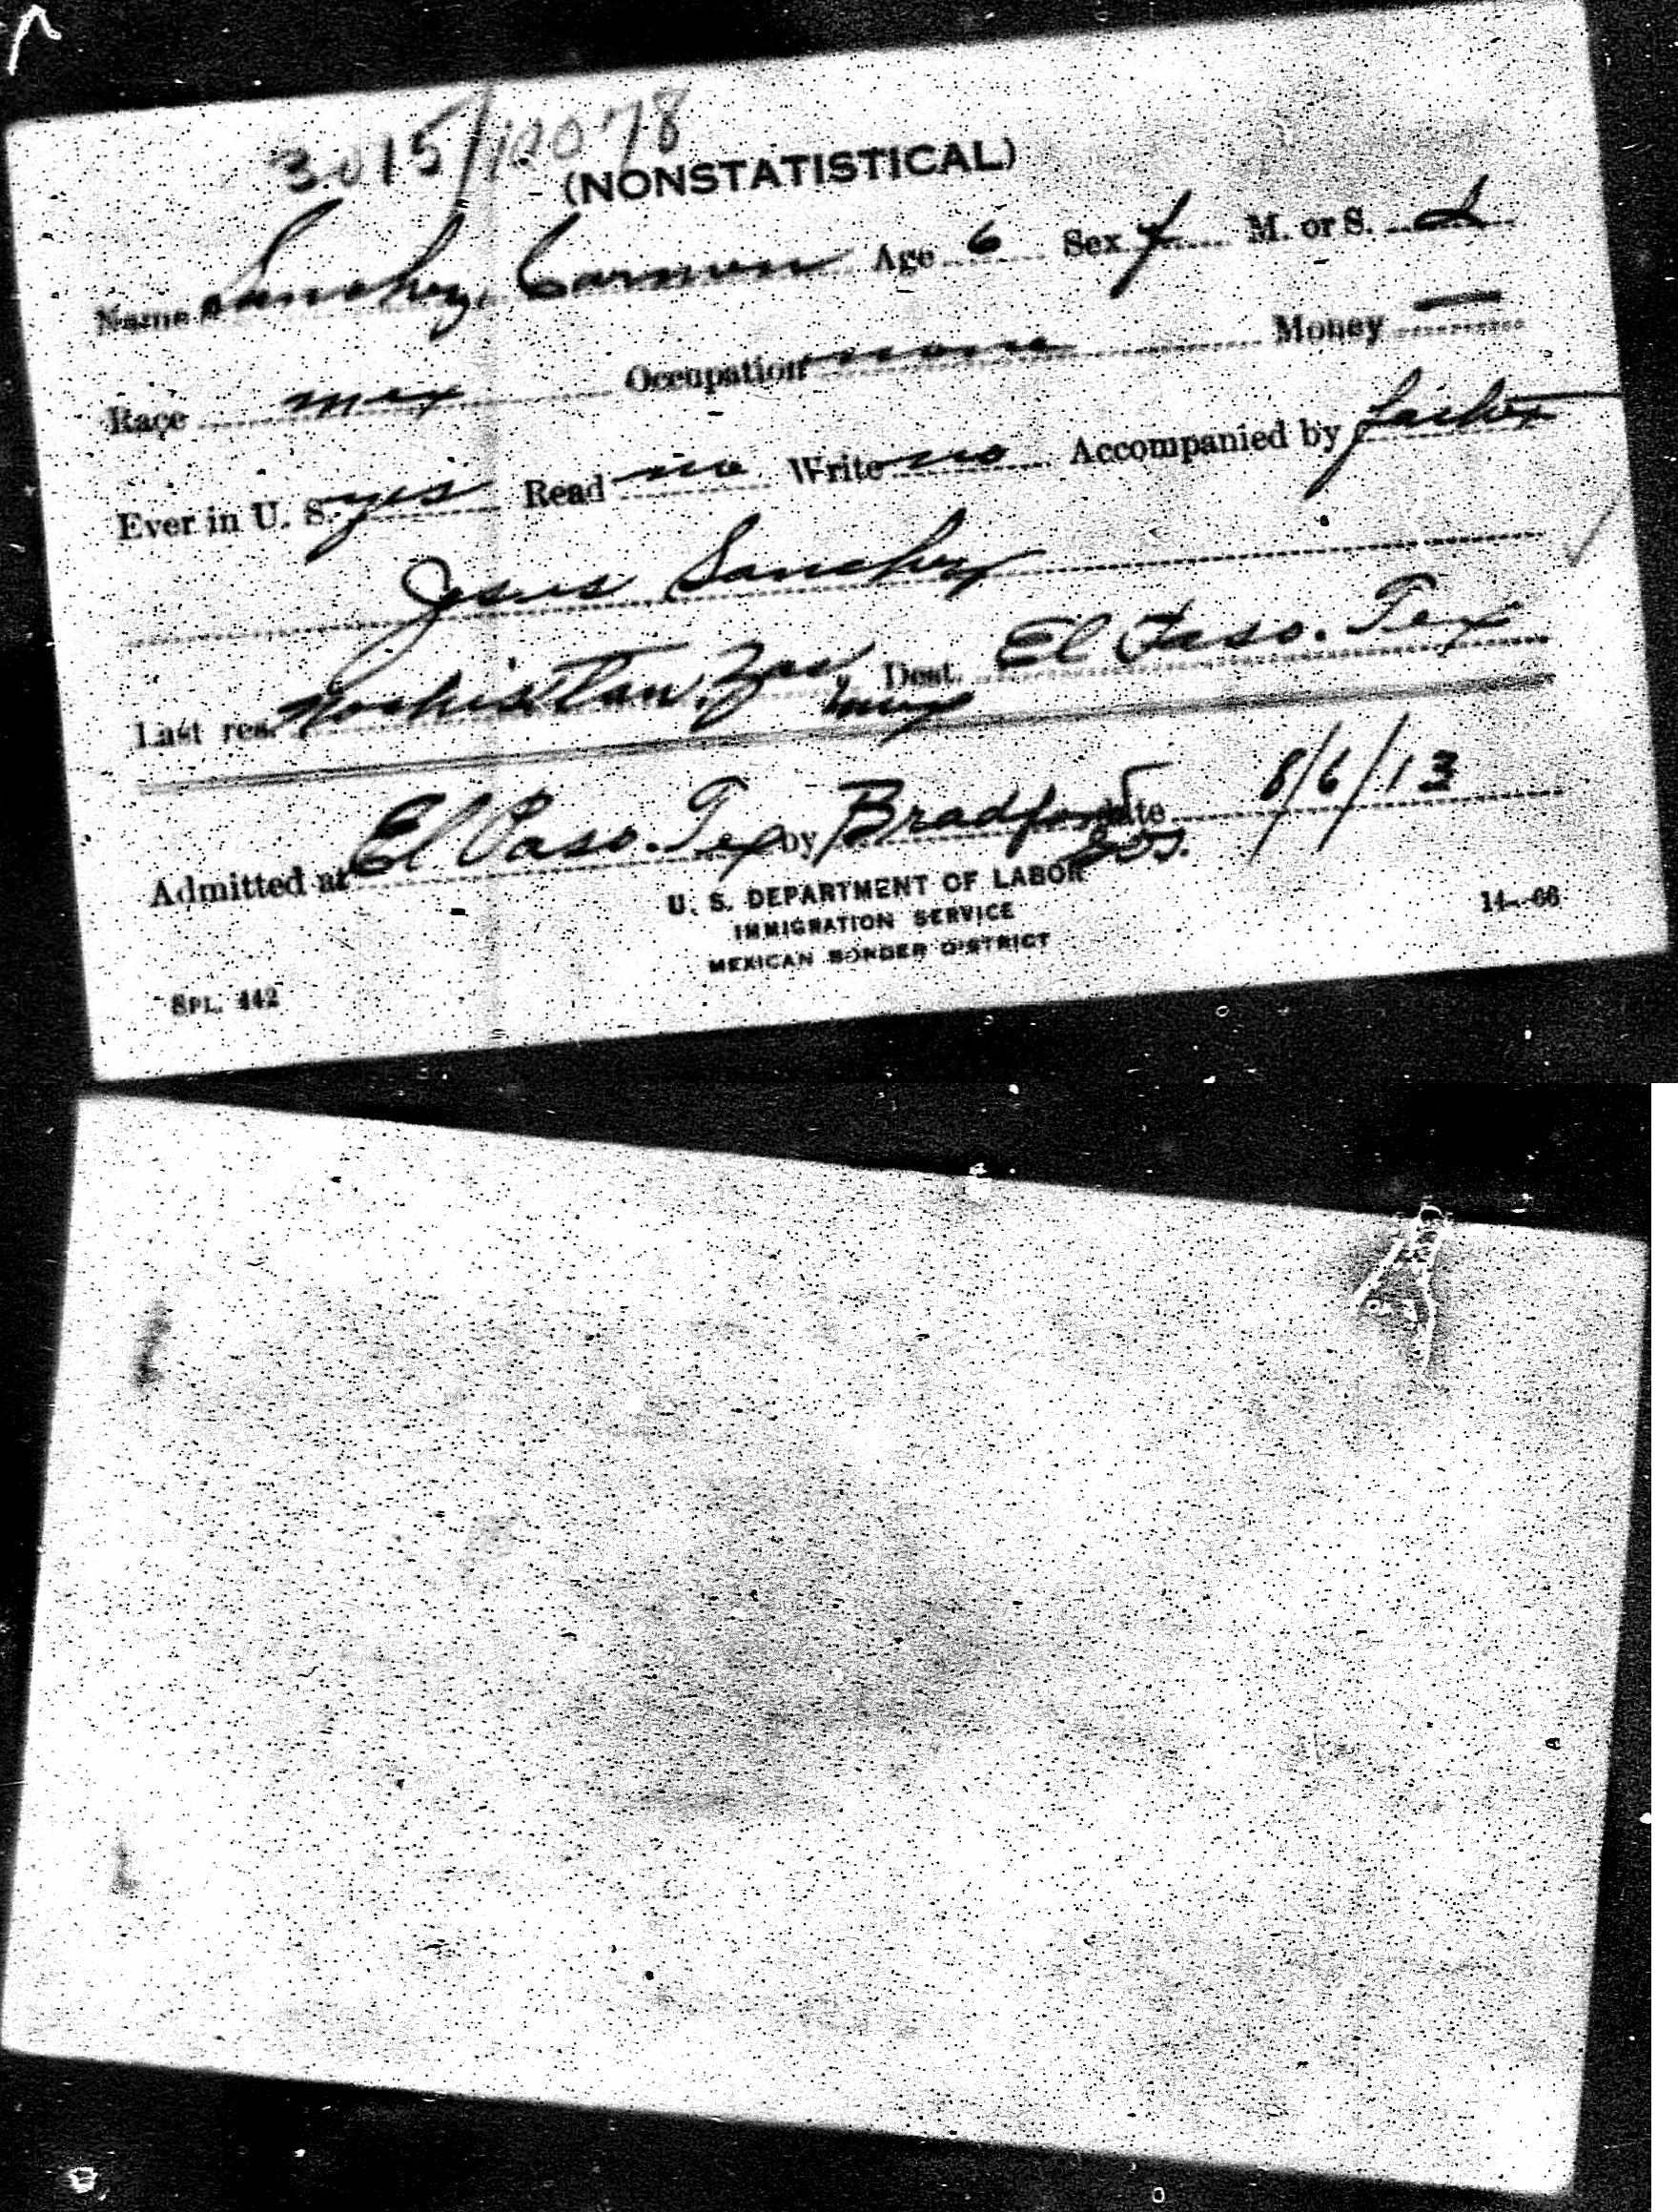 3015/10078
(NONSTATISTICAL)
Name Sanchez, Carmen Age 6 Sex f M. or S. S
Race mex Occupation none Money —
Ever in U. S. yes Read no Write no Accompanied by father
Jesus Sanchez
Last res. Nochistlan, Zac, Mex Dest. El Paso. Tex
Admitted at El Paso. Tex by Bradford Date 8/6/13
U. S. DEPARTMENT OF LABOR
IMMIGRATION SERVICE
MEXICAN BORDER DISTRICT
14—66
SPL. 442